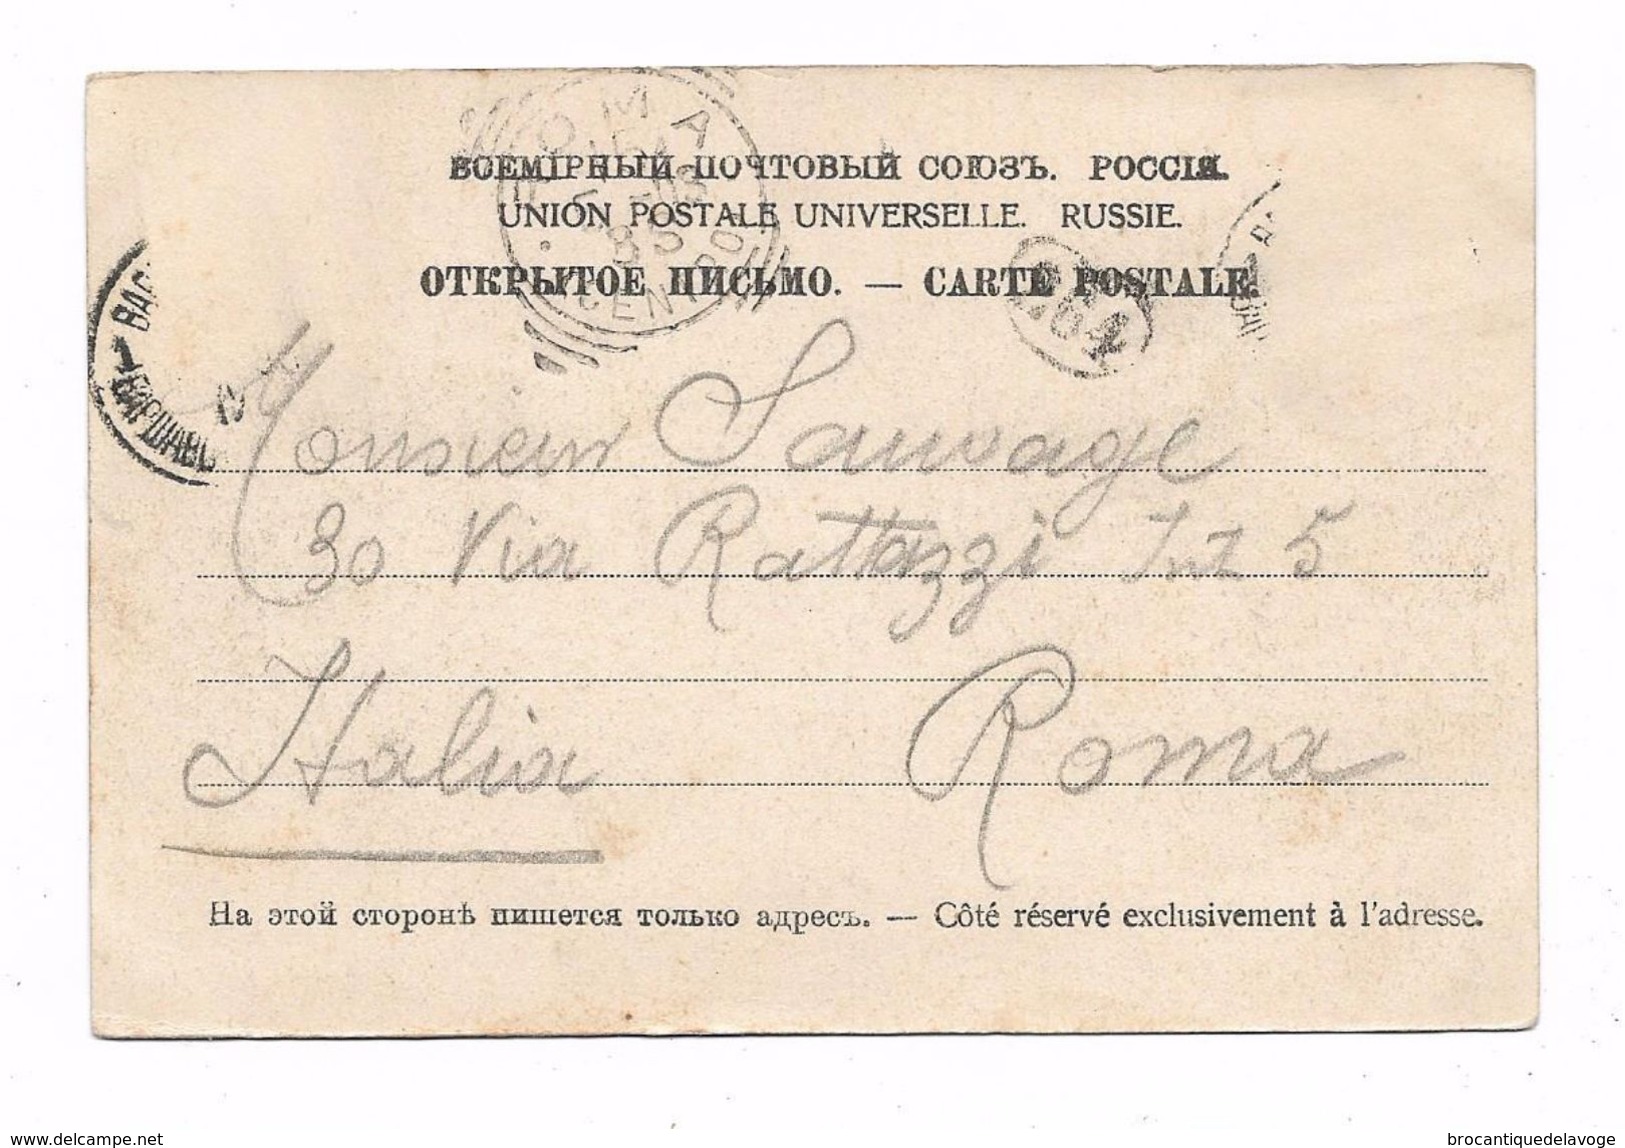 ROMA
CENTRO
ВСЕМІРНЫЙ ПОЧТОВЫЙ СОЮЗЪ. РОССІЯ.
UNION POSTALE UNIVERSELLE. RUSSIE.
ОТКРЫТОЕ ПИСЬМО. — CARTE POSTALE.
Monsieur Sauvage
30 Via Rattazzi Int 5
Italia Roma
На этой сторонѣ пишется только адресъ. — Côté réservé exclusivement à l'adresse.
www.delcampe.net
brocantiquedelavoge